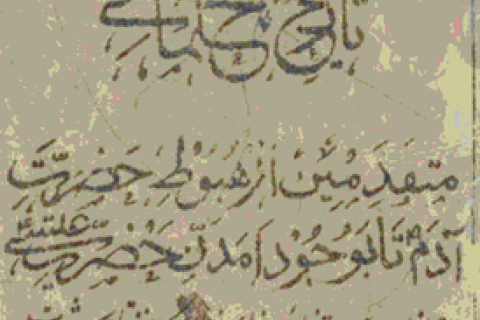 تاریخ حکمای
متقدمین از هبوط حضرت
آدم تا بوجود آمدن حضرت